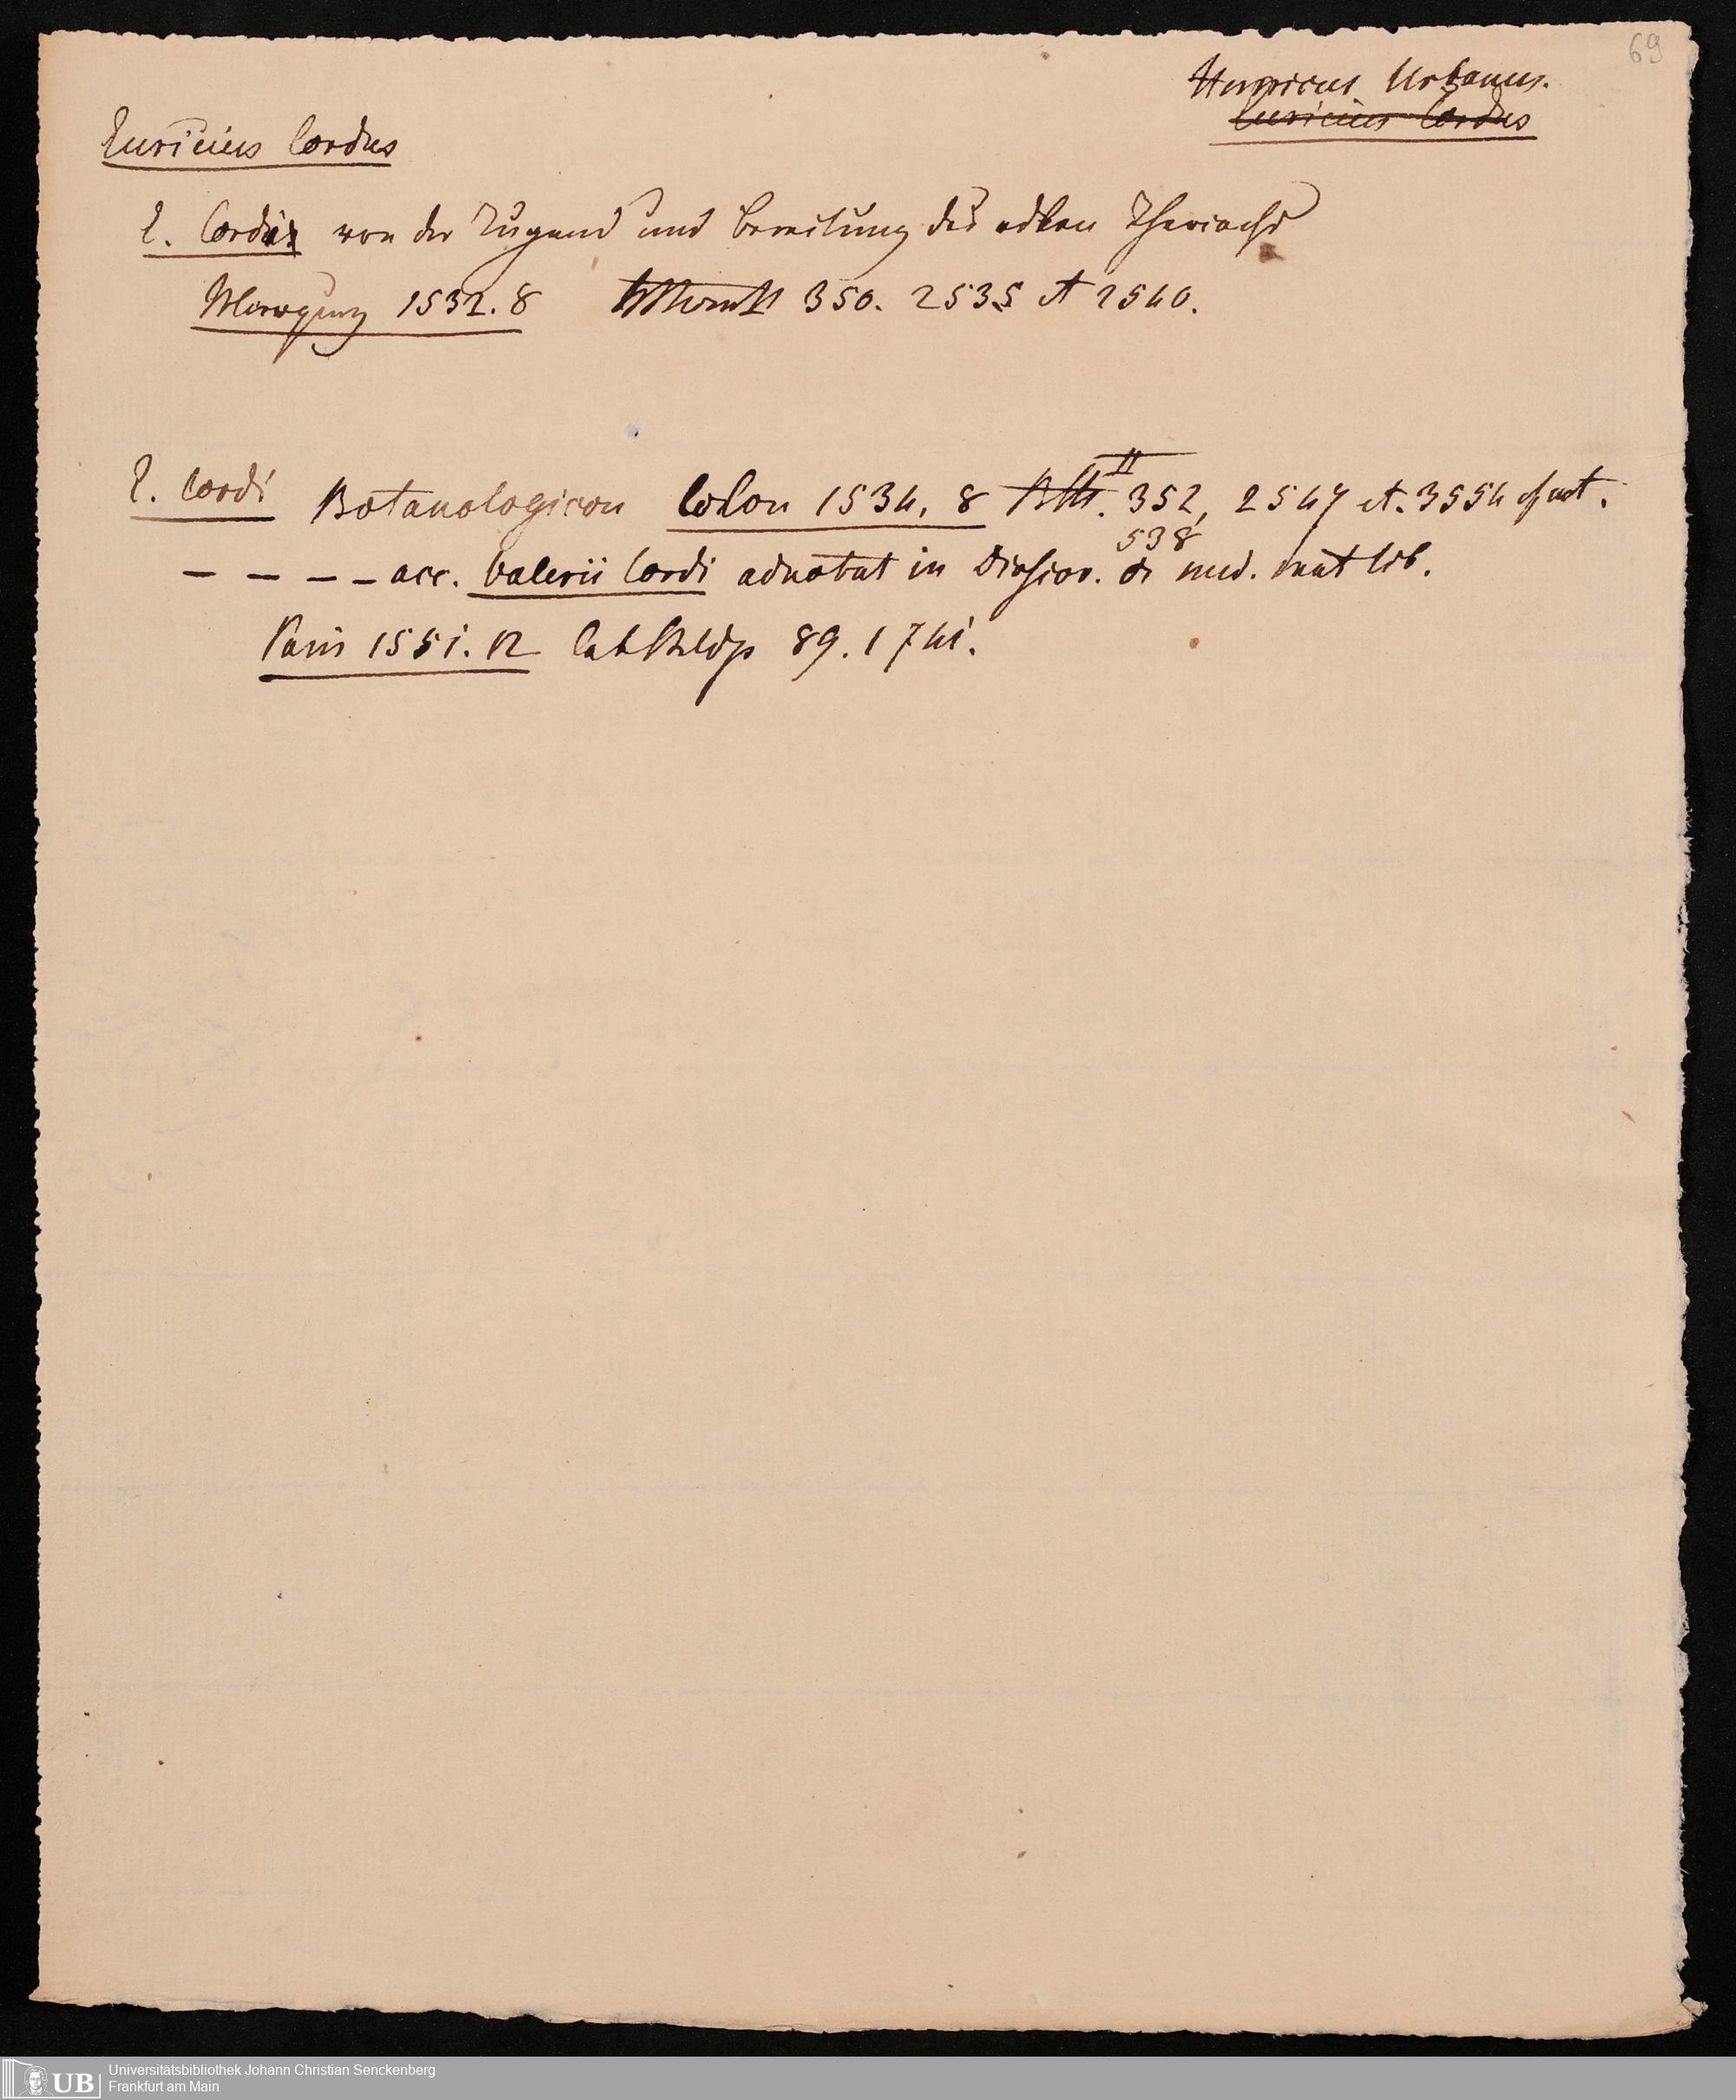 69
Henricus Urbanus.
Euricius Cordus
Euricius Cordus
E. Cordus von der Tugend und Bereitung des edlen Theriacks
Marpurg 1532. 8 350. 2535 et 2540.
E. Cordi Botanologicon Colon 1534. 8 II 352, 2547 et. 3554
538
– – – – acc. Valerii Cordi adnotat in Dioscor. de med. mat lib.
Paris 1551. 12 89. 1741.
UB Universitätsbibliothek Johann Christian Senckenberg
Frankfurt am Main